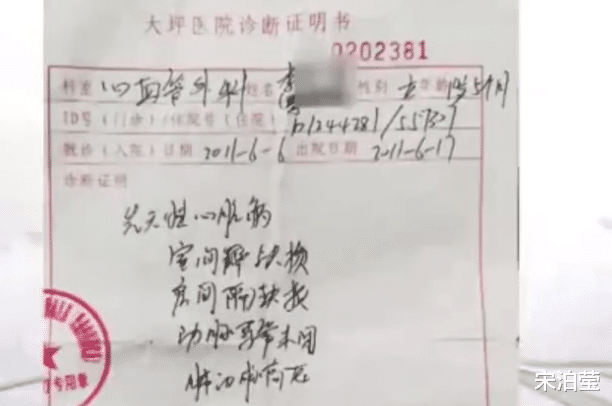 大坪医院诊断证明书
0202381
科室 心血管外科 姓名 李 性别 女 年龄 1岁5个月
ID号(门诊)/住院号(住院)
就诊(入院)日期 2011-6-6 出院日期 2011-6-17
诊断证明
先天性心脏病
室间隔缺损
房间隔缺损
动脉导管未闭
肺动脉高压
专用章
宋泊莹